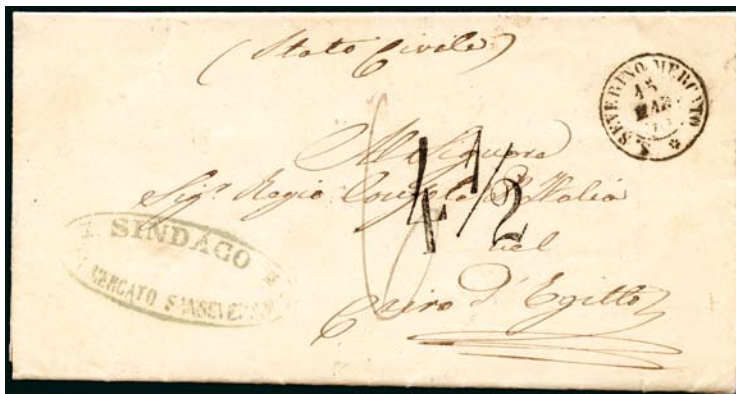 (Stato Civile)
S. SEVERINO MERCATO
15
MAR
All Signore
Sigr Regio Console d'Italia
4 1/2
nel
Cairo d'Egitto
IL SINDACO
MERCATO SANSEVERINO